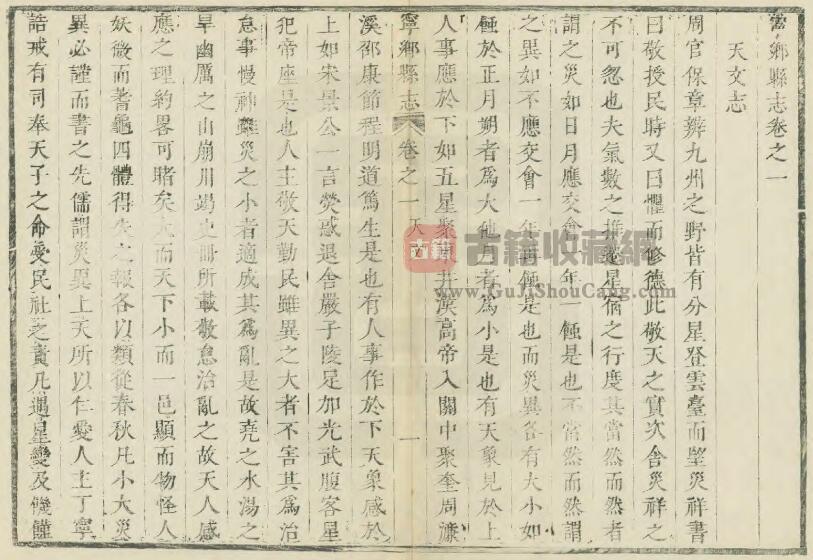 寧鄉縣志卷之一
天文志
周官保章辨九州之野皆有分星登雲臺而望災祥書
曰敬授民時又曰懼而修德此敬天之實次舍災祥之
不可忽也夫氣數之推遷星宿之行度其當然而然者
謂之災如日月應交會一年一蝕是也不當然而然謂
之異如不應交會一年再蝕是也而災異各有大小如
蝕於正月朔者爲大他月者爲小是也有天象見於上
人事應於下如五星聚東井漢高帝入關中聚奎周濂
寧鄉縣志 卷之一 天文 一
溪邵康節程明道篤生是也有人事作於下天象感於
上如宋景公一言熒惑退舍嚴子陵足加光武腹客星
犯帝座是也人主敬天勤民雖異之大者不害其爲治
怠事慢神雖災之小者適成其爲亂是故堯之水湯之
旱幽厲之山崩川竭史冊所載敬怠治亂之故天人感
應之理約畧可睹矣大而天下小而一邑顯而物怪人
妖微而蓍龜四體得失之報各以類從春秋凡小大災
異必謹而書之先儒謂災異上天所以仁愛人主丁寧
誥戒有司奉天子之命受民社之責凡遇星變及饑饉
古籍
古籍收藏網
www.GuJiShouCang.com